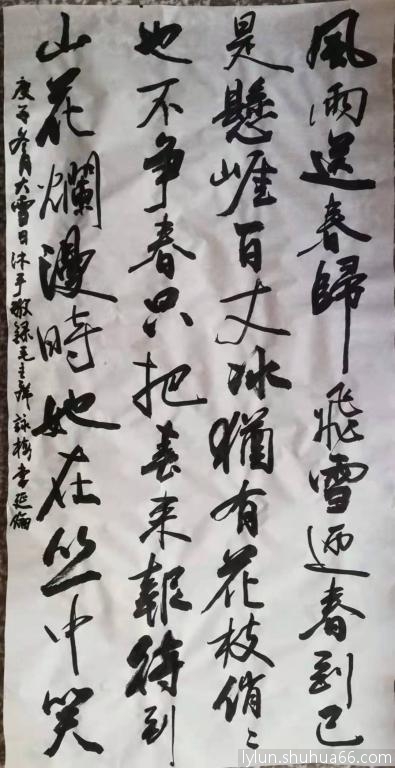 風雨送春歸飛雪迎春到已
是懸崖百丈冰猶有花枝俏〻
也不争春只把春来報待到
山花爛漫時她在丛中笑
庚子冬月大雪日沐手敬録毛主席詠梅
lylun.shuhua66.com